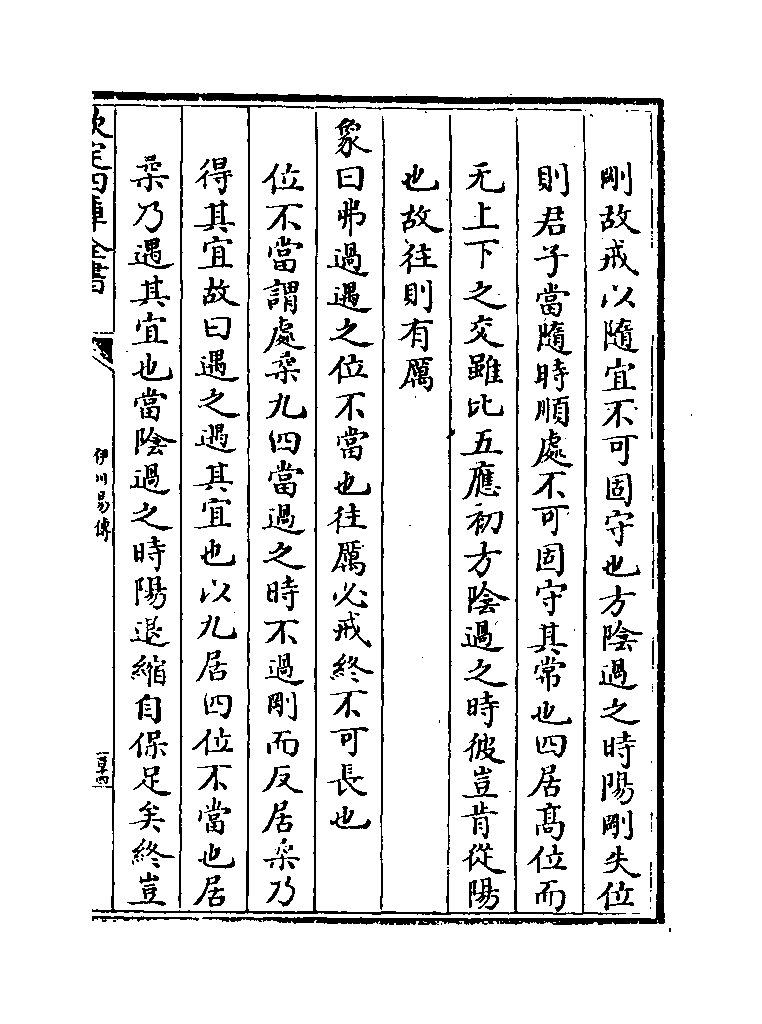 剛故戒以隨宜不可固守也方陰過之時陽剛失位
則君子當隨時順處不可固守其常也四居髙位而
无上下之交雖比五應初方陰過之時彼豈肯從陽
也故往則有厲
象曰弗過遇之位不當也往厲必戒終不可長也
位不當謂處柔九四當過之時不過剛而反居柔乃
得其宜故曰遇之遇其宜也以九居四位不當也居
柔乃遇其宜也當陰過之時陽退縮自保足矣終豈
欽定四庫全書
伊川易傳